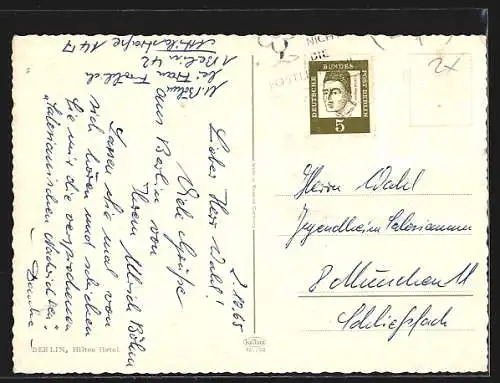 U. Böhm
bei Frau Fallich
1 Berlin 42
Attilastraße 147
2. 10. 65
Lieber Herr Wahl!
Viele Grüße
aus Berlin von
Ihrem Ulrich Böhm
Lassen Sie mal von
sich hören und schicken
Sie mir die versprochenen
"Salesianischen Nachrichten"
- Danke -
BERLIN, Hilton Hotel
NICHT
DIE
DEUTSCHE BUNDES POST BERLIN
5
2x
Herrn Wahl
Jugendheim Salesianum
8 München 11
Schließfach
Krüger